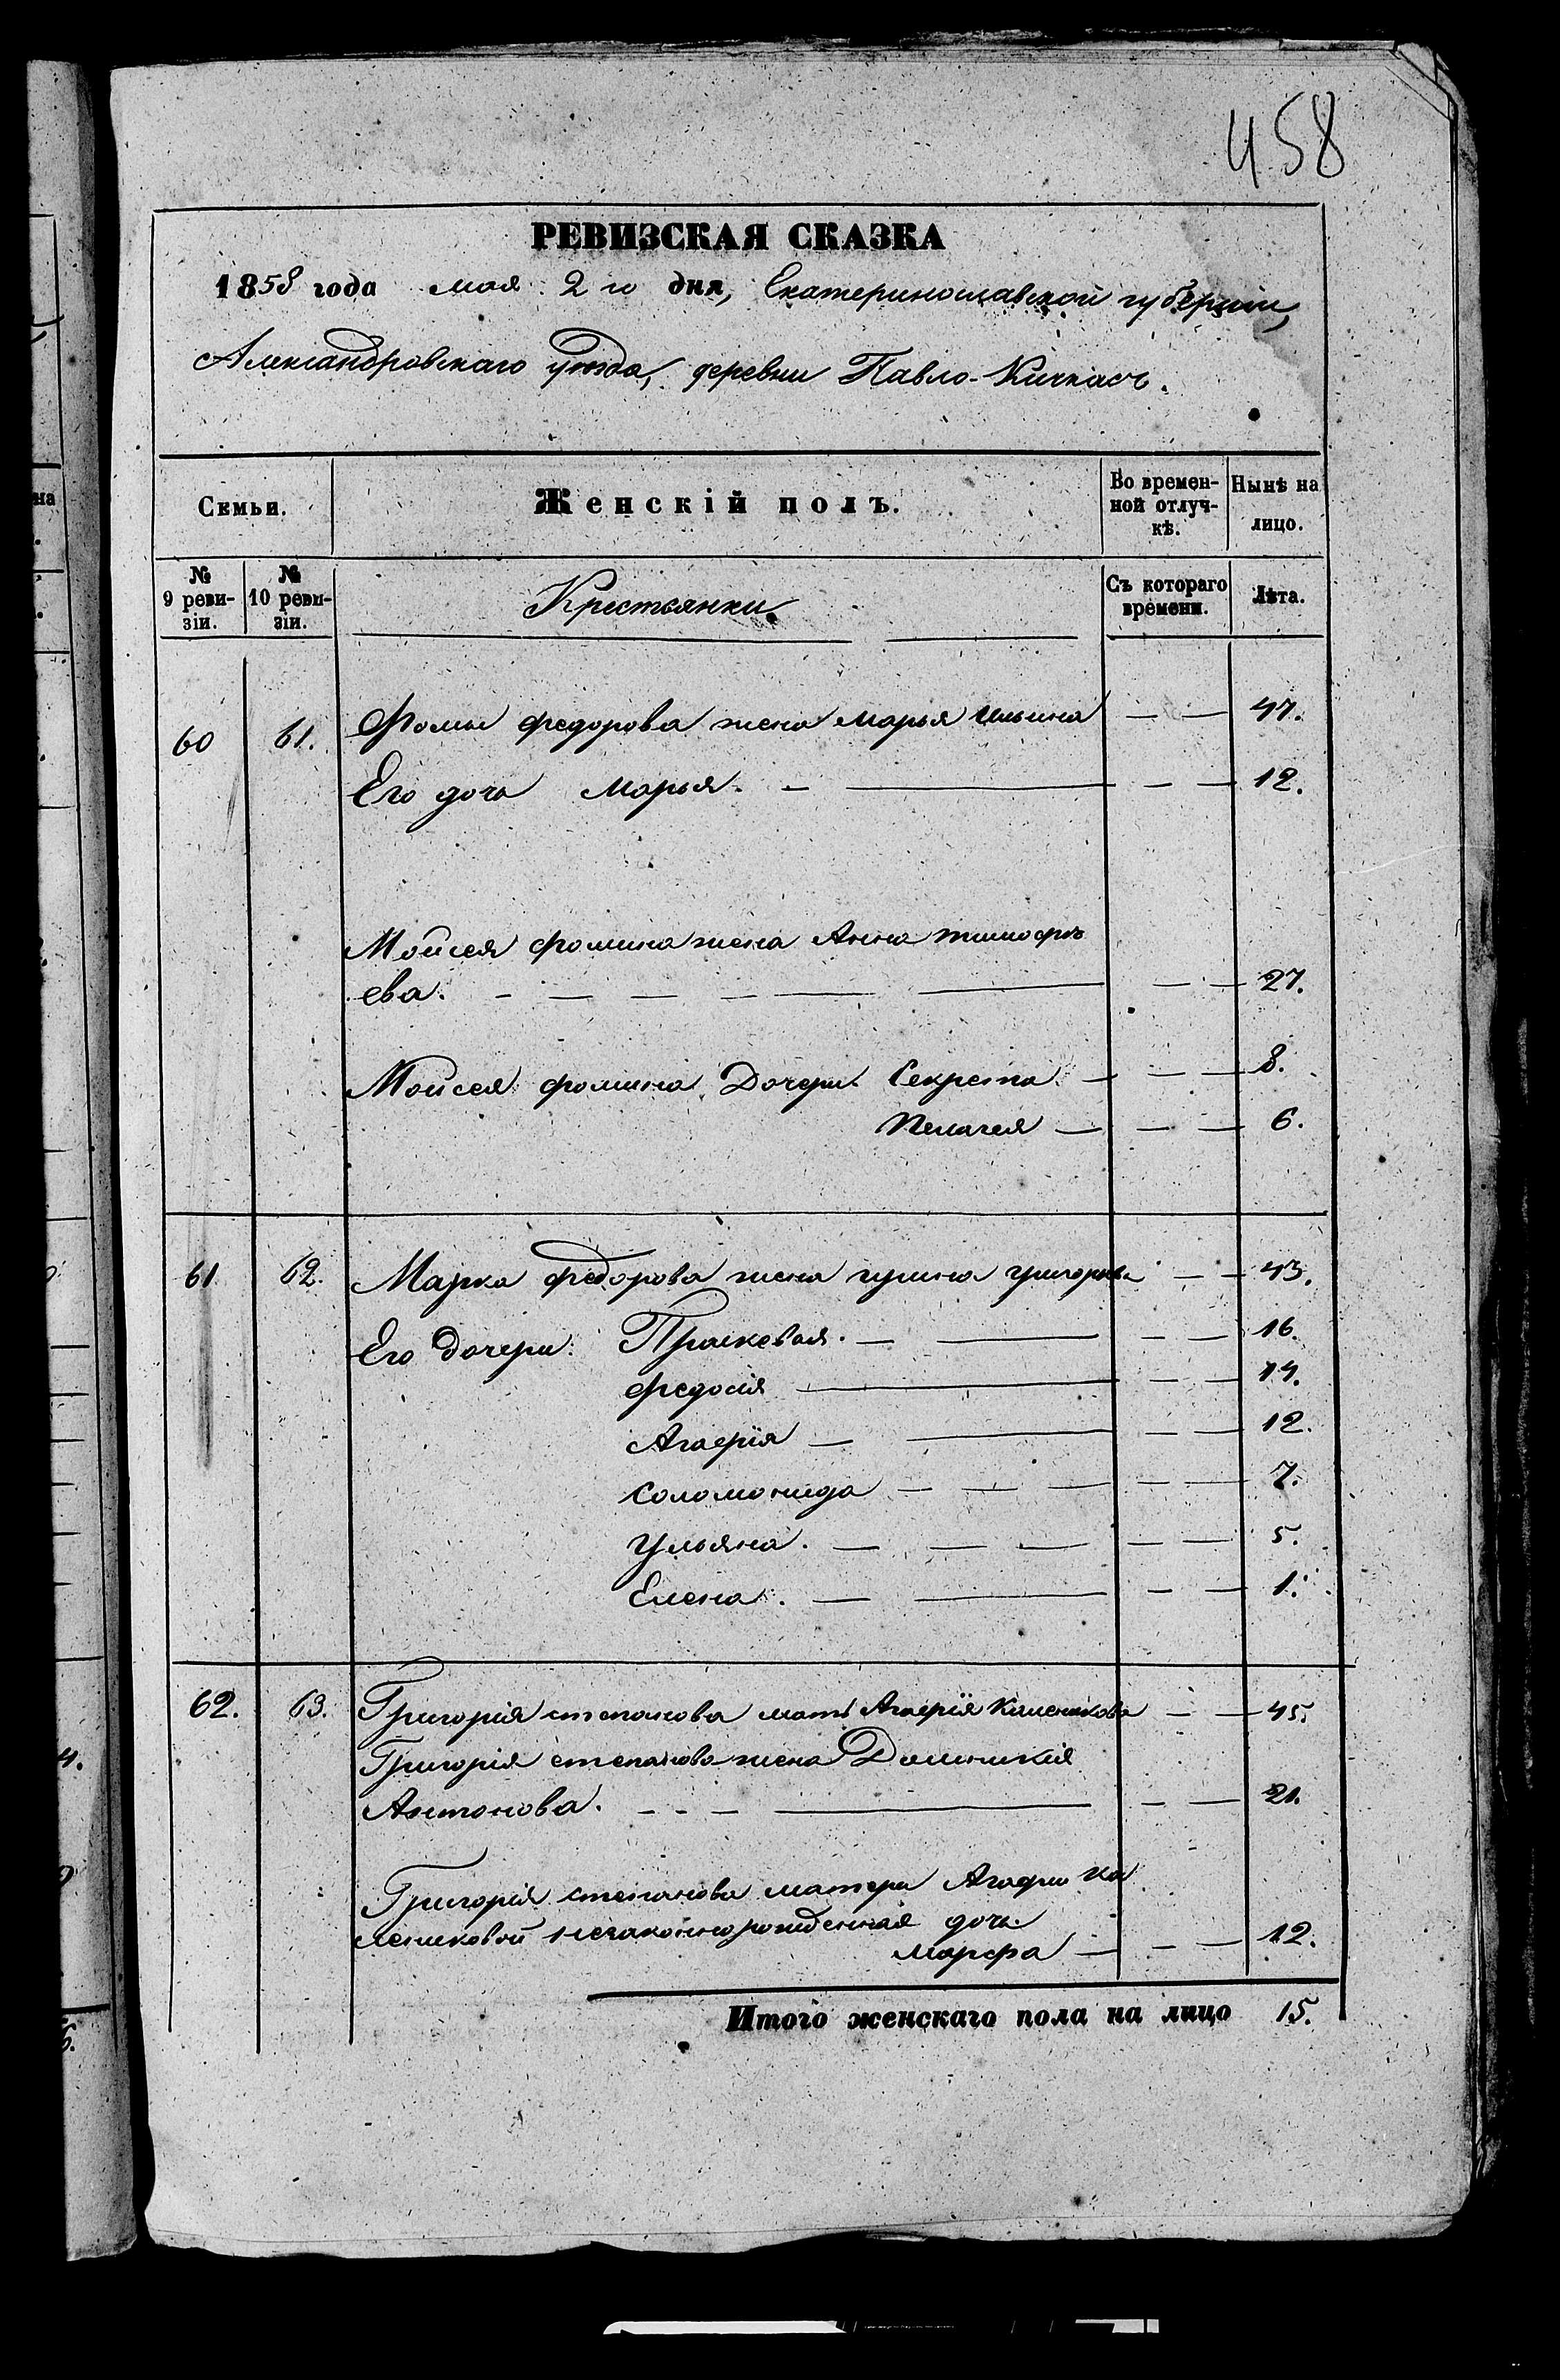 458
РЕВИЗСКАЯ СКАЗКА
1858 года мая 2 го дня, Екатеринославской губерніи,
Александровскаго уѣзда, деревни Павло-Кичкасъ.
Семьи. Женскій полъ. Во времен-ной отлуч-кѣ. Нынѣ на лицо.
№ 9 реви-зіи. № 10 реви-зіи. Крестьянки. Съ котораго времени. Лѣта.
60 61. Фомы Федорова жена Марья Ильина — — 47.
Его дочь Марья. — — — 12.
Мойсея Фомина жена Анна Тимофѣ
ева. — — — 27.
Мойсея Фомина Дочери Секрета — — — 8.
Пелагея — — — 6.
61 62. Марка Федорова жена Григорьева — — 43.
Его Дочери Прасковья. — — — 16.
Федосія — — — 14.
Агафія — — — 12.
Соломонида — — — 7.
Ульяна. — — — 5.
Елена. — — — 1.
62. 63. Григорія Степанова мать Агафія Каленикова — — 45.
Григорія Степанова жена Домникія
Антонова. — — — 21.
Григорія Степанова матери Агафіи Ка
лениковой незаконнорожденная дочь
Марфа — — — 12.
Итого женскаго пола на лицо 15.